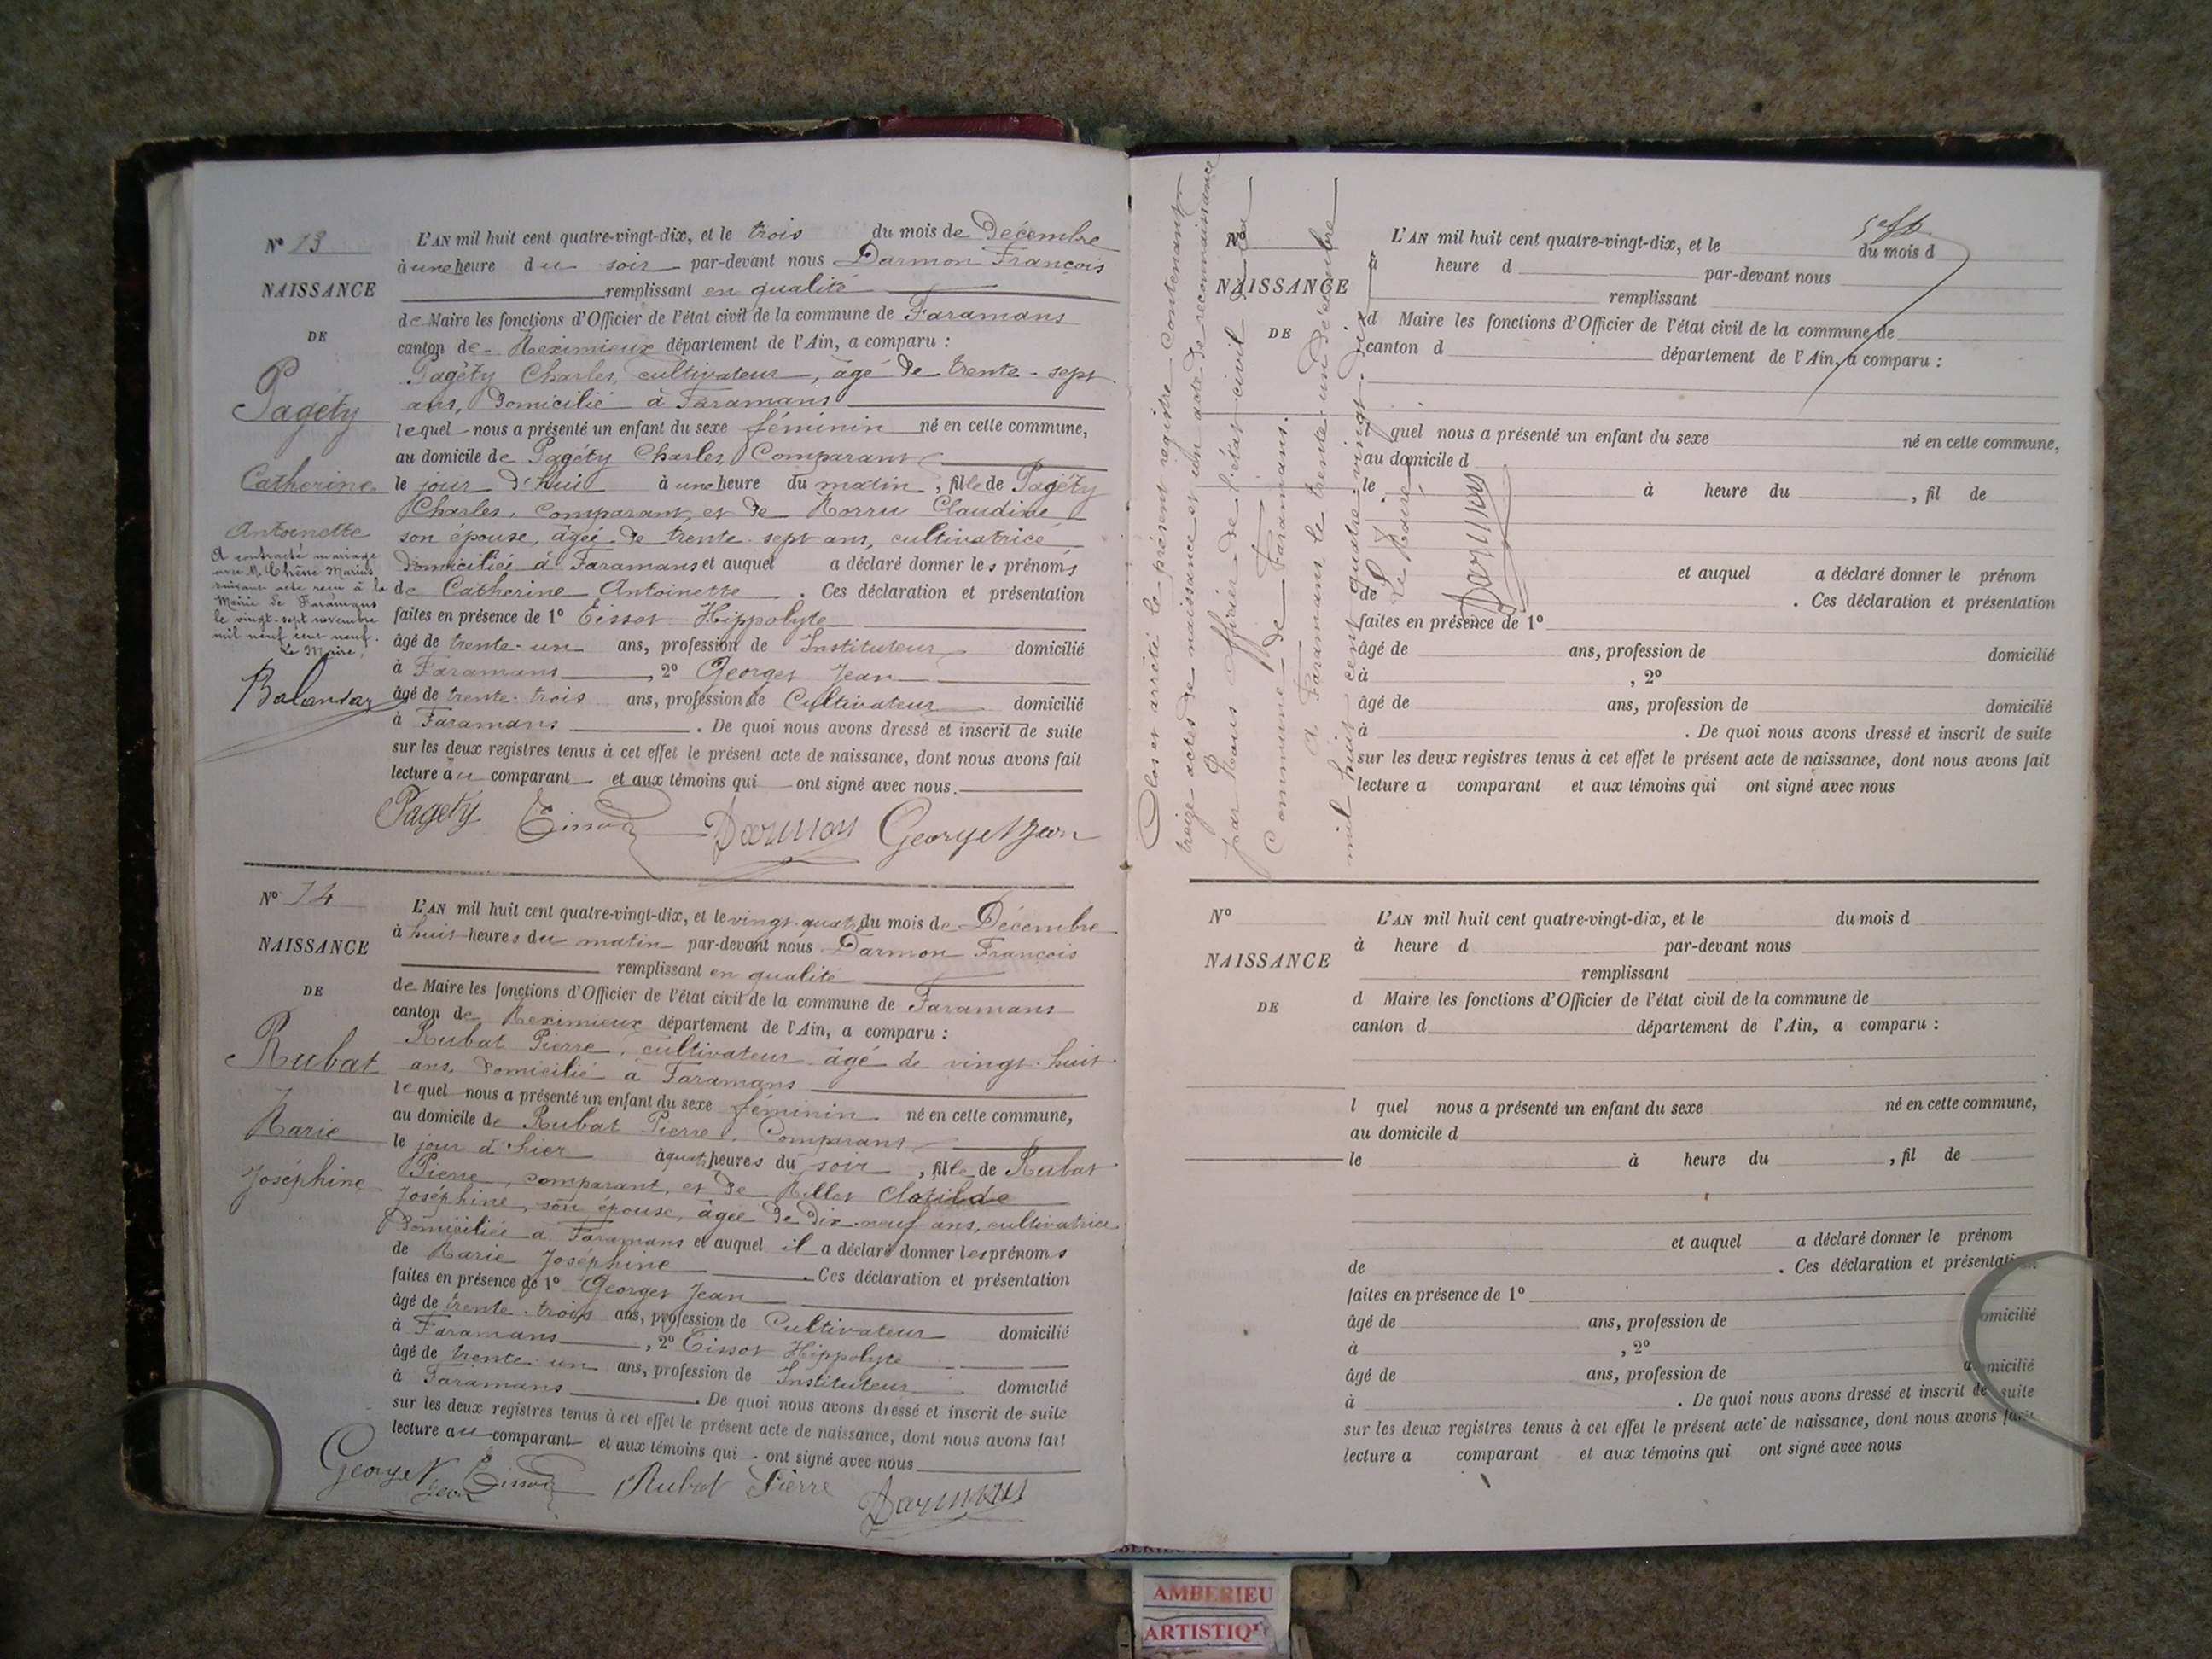 Nº 13
NAISSANCE
DE
Pagéty
Catherine
Antoinette
A contracté mariage
avec M. Chêne Marius
suivant acte reçu à la
Mairie de Faramans
le vingt-sept novembre
mil neuf cent neuf.
Le Maire,
L'AN mil huit cent quatre-vingt-dix, et le trois du mois de Décembre
à une heure du soir par-devant nous Darmon François
remplissant en qualité
de Maire les fonctions d'Officier de l'état civil de la commune de Faramans
canton de Meximieux département de l'Ain, a comparu :
Pagéty Charles, cultivateur, âgé de trente-sept
ans, domicilié à Faramans
lequel nous a présenté un enfant du sexe féminin né en cette commune,
au domicile de Pagéty Charles, Comparant
le jour d'hui à une heure du matin, fille de Pagéty
Charles, comparant, et de Claudine
son épouse, âgée de trente-sept ans, cultivatrice
domiciliée à Faramans et auquel a déclaré donner les prénoms
de Catherine Antoinette . Ces déclaration et présentation
faites en présence de 1º Tissot Hippolyte
âgé de trente-un ans, profession de Instituteur domicilié
à Faramans , 2º Georget Jean
âgé de trente-trois ans, profession de Cultivateur domicilié
à Faramans . De quoi nous avons dressé et inscrit de suite
sur les deux registres tenus à cet effet le présent acte de naissance, dont nous avons fait
lecture au comparant et aux témoins qui ont signé avec nous.
Pagéty Tissot Darmon Georget Jean
Nº 14
NAISSANCE
DE
Rubat
Marie
Joséphine
L'AN mil huit cent quatre-vingt-dix, et le vingt-quatre du mois de Décembre
à huit heures du matin par-devant nous Darmon François
remplissant en qualité
de Maire les fonctions d'Officier de l'état civil de la commune de Faramans
canton de Meximieux département de l'Ain, a comparu :
Rubat Pierre, cultivateur âgé de vingt-huit
ans, domicilié à Faramans
lequel nous a présenté un enfant du sexe féminin né en cette commune,
au domicile de Rubat Pierre, Comparant
le jour d'hier à quatre heures du soir , fille de Rubat
Pierre, comparant, et de Millet Clotilde
Joséphine, son épouse, âgée de dix-neuf ans, cultivatrice
domiciliée à Faramans et auquel il a déclaré donner les prénoms
de Marie Joséphine . Ces déclaration et présentation
faites en présence de 1º Georget Jean
âgé de trente-trois ans, profession de Cultivateur domicilié
à Faramans , 2º Tissot Hippolyte
âgé de trente-un ans, profession de Instituteur domicilié
à Faramans . De quoi nous avons dressé et inscrit de suite
sur les deux registres tenus à cet effet le présent acte de naissance, dont nous avons fait
lecture au comparant et aux témoins qui ont signé avec nous
Georget Jean Tissot Rubat Pierre Darmon
Clos et arrêté le présent registre contenant
treize actes de naissance et un acte de reconnaissance
par Nous Officier de l'état civil de la
Commune de Faramans.
A Faramans le trente-un décembre
mil huit cent quatre-vingt-dix
Le Maire,
Darmon
Nº
NAISSANCE
DE
L'AN mil huit cent quatre-vingt-dix, et le du mois d
à heure d par-devant nous
remplissant
d Maire les fonctions d'Officier de l'état civil de la commune de
canton d département de l'Ain, a comparu :
l quel nous a présenté un enfant du sexe né en cette commune,
au domicile d
le à heure du , fil de
et auquel a déclaré donner le prénom
de . Ces déclaration et présentation
faites en présence de 1º
âgé de ans, profession de domicilié
à , 2º
âgé de ans, profession de domicilié
à . De quoi nous avons dressé et inscrit de suite
sur les deux registres tenus à cet effet le présent acte de naissance, dont nous avons fait
lecture a comparant et aux témoins qui ont signé avec nous
Nº
NAISSANCE
DE
L'AN mil huit cent quatre-vingt-dix, et le du mois d
à heure d par-devant nous
remplissant
d Maire les fonctions d'Officier de l'état civil de la commune de
canton d département de l'Ain, a comparu :
l quel nous a présenté un enfant du sexe né en cette commune,
au domicile d
le à heure du , fil de
et auquel a déclaré donner le prénom
de . Ces déclaration et présentation
faites en présence de 1º
âgé de ans, profession de domicilié
à , 2º
âgé de ans, profession de domicilié
à . De quoi nous avons dressé et inscrit de suite
sur les deux registres tenus à cet effet le présent acte de naissance, dont nous avons fait
lecture a comparant et aux témoins qui ont signé avec nous
AMBERIEU
ARTISTIQ